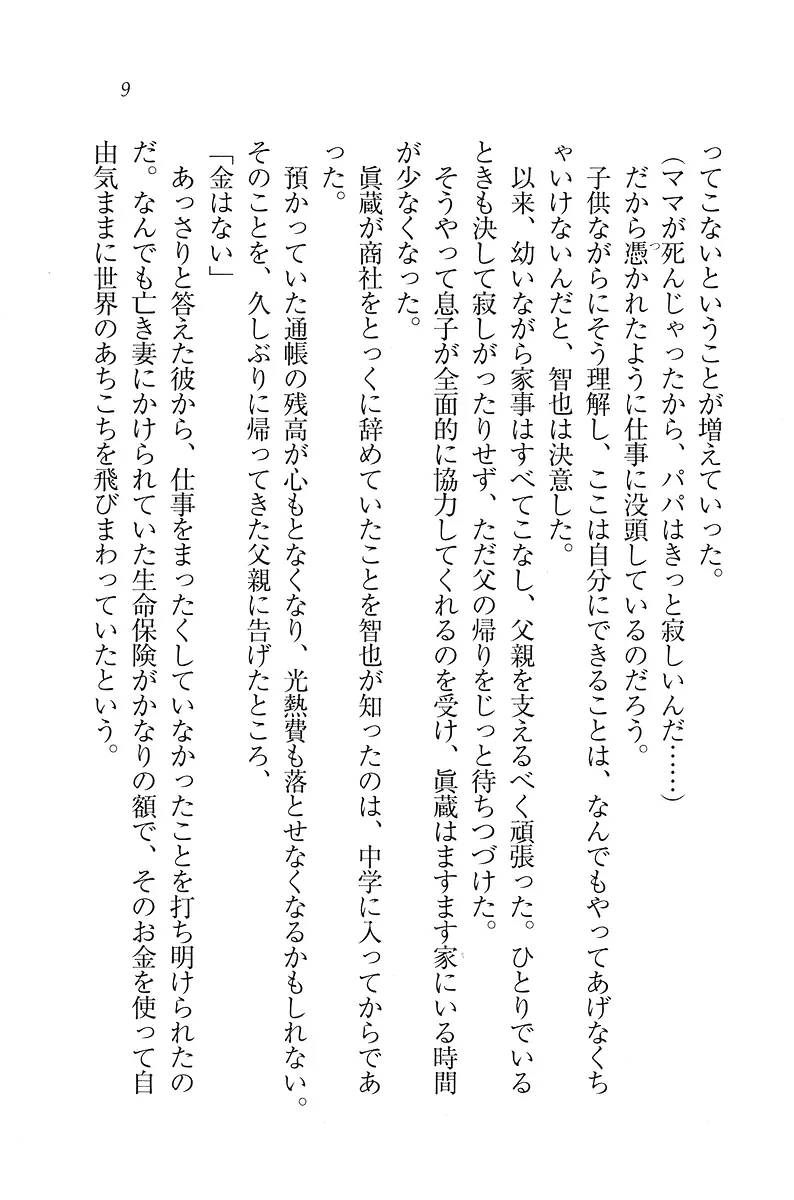 9
ってこないということが増えていった。
(ママが死んじゃったから、パパはきっと寂しいんだ……)
だから憑かれたように仕事に没頭しているのだろう。
つ
子供ながらにそう理解し、ここは自分にできることは、なんでもやってあげなくち
ゃいけないんだと、智也は決意した。
以来、幼いながら家事はすべてこなし、父親を支えるべく頑張った。ひとりでいる
ときも決して寂しがったりせず、ただ父の帰りをじっと待ちつづけた。
そうやって息子が全面的に協力してくれるのを受け、眞蔵はますます家にいる時間
が少なくなった。
眞蔵が商社をとっくに辞めていたことを智也が知ったのは、中学に入ってからであ
った。
預かっていた通帳の残高が心もとなくなり、光熱費も落とせなくなるかもしれない。
そのことを、久しぶりに帰ってきた父親に告げたところ、
「金はない」
あっさりと答えた彼から、仕事をまったくしていなかったことを打ち明けられたの
だ。なんでも亡き妻にかけられていた生命保険がかなりの額で、そのお金を使って自
由気ままに世界のあちこちを飛びまわっていたという。